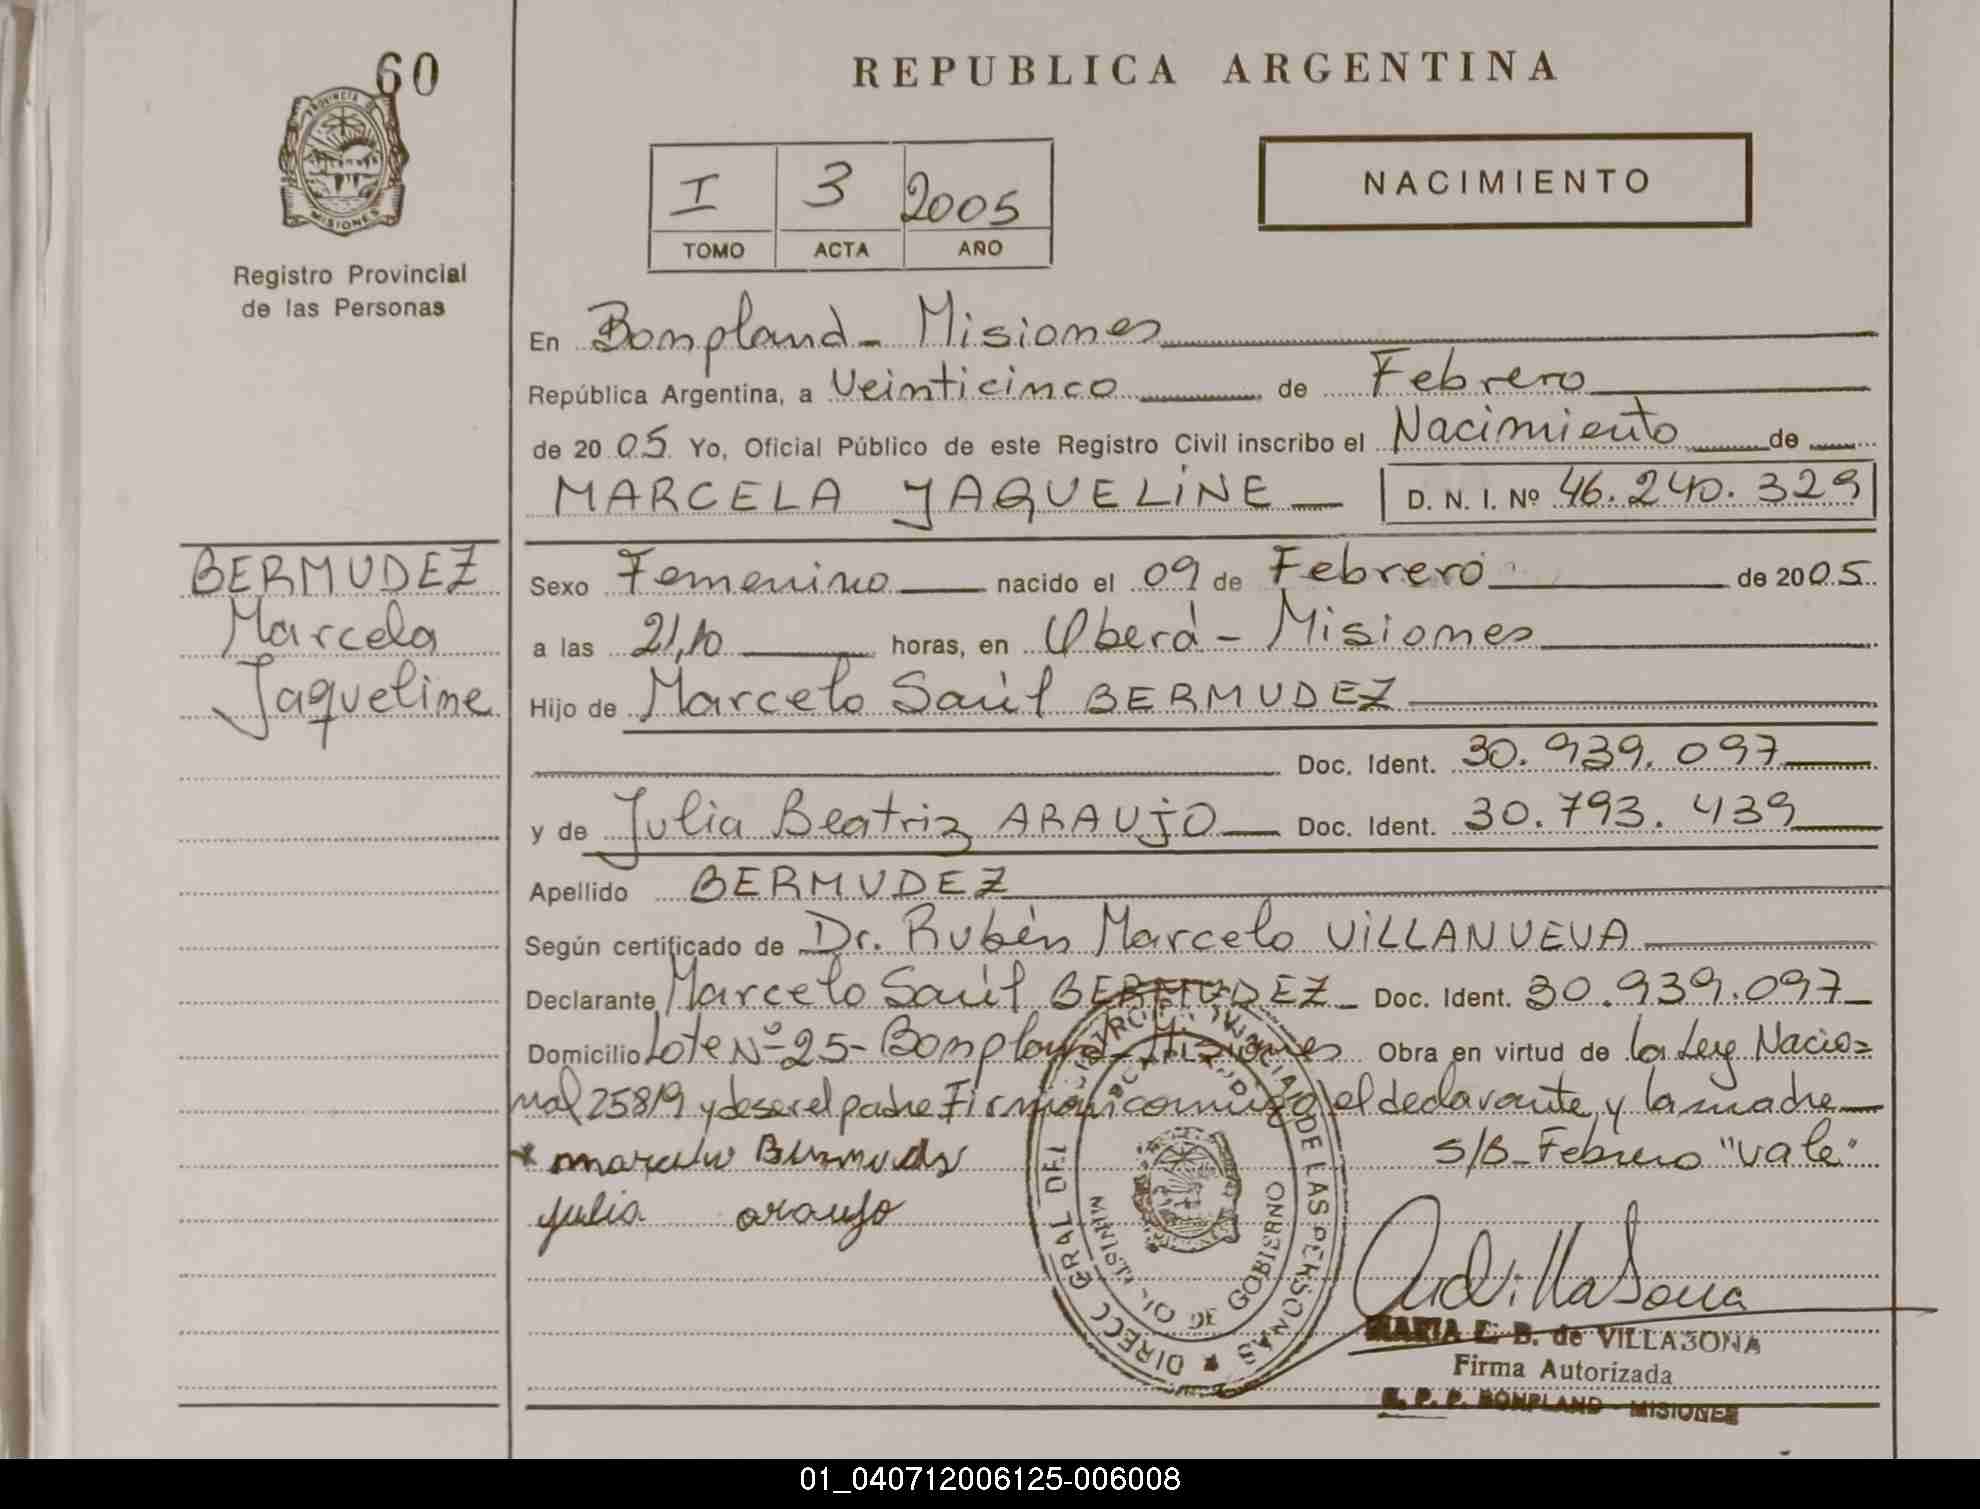 60
PROVINCIA DE
MISIONES
Registro Provincial
de las Personas
BERMUDEZ
Marcela
Jaqueline
REPUBLICA ARGENTINA
I 3 2005
TOMO ACTA AÑO
NACIMIENTO
En Bonpland - Misiones
República Argentina, a Veinticinco de Febrero
de 2005 Yo, Oficial Público de este Registro Civil inscribo el Nacimiento de
MARCELA JAQUELINE D. N. I. Nº 46.240.329
Sexo Femenino nacido el 09 de Febrero de 2005
a las 21,10 horas, en Oberá - Misiones
Hijo de Marcelo Saúl BERMUDEZ
Doc. Ident. 30.939.097
y de Julia Beatriz ARAUJO Doc. Ident. 30.793.439
Apellido BERMUDEZ
Según certificado de Dr. Rubén Marcelo VILLANUEVA
Declarante Marcelo Saúl BERMUDEZ - Doc. Ident. 30.939.097
Domicilio Lote Nº 25 - Bonpland - Misiones Obra en virtud de la Ley Nacio=
nal 25819 y de ser el padre Firman conmigo el declarante y la madre
S/B - Febrero "vale"
x marcelo Bermudez
julia araujo
DE LAS PERSONAS
DE GOBIERNO
MARIA E. B. de VILLASONA
Firma Autorizada
R. P. P. BONPLAND - MISIONES
01_040712006125-006008